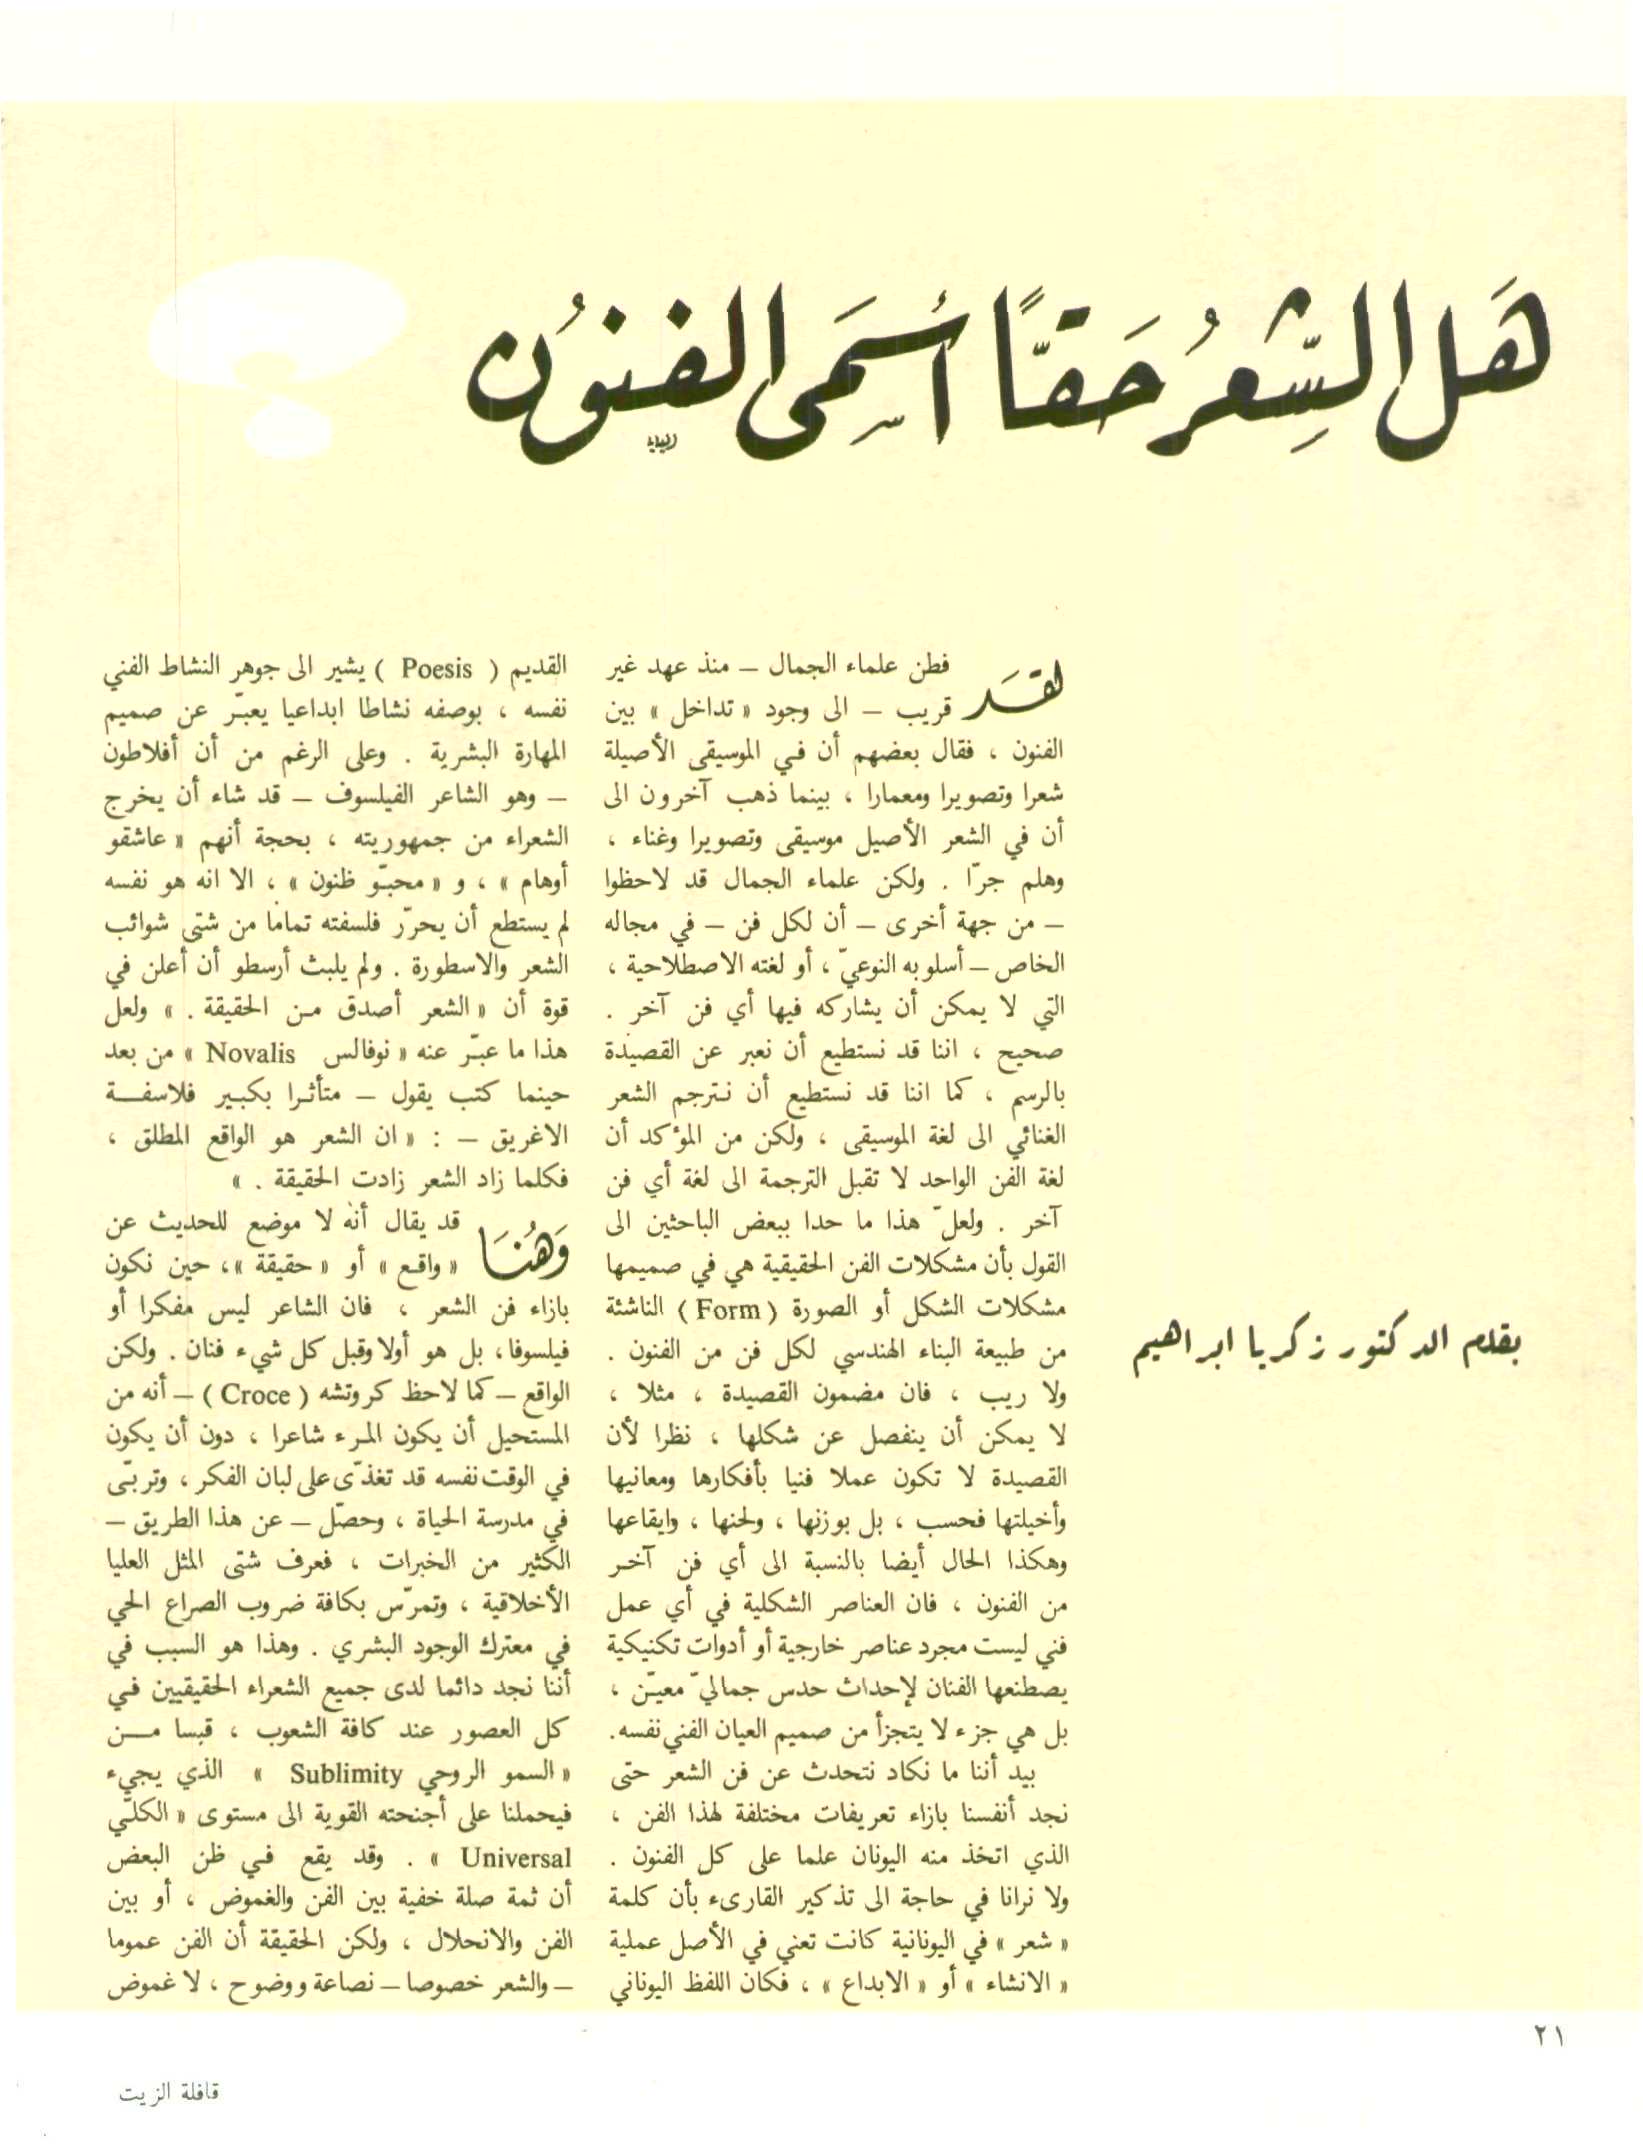 هَل الشِّعرُ حَقًّا أسمَى الفنوُن
بقلم الدكتور زكريا ابراهيم
لقَد فطن علماء الجمال – منذ عهد غير
قريب – الى وجود « تداخل » بين
الفنون ، فقال بعضهم أن في الموسيقى الأصيلة
شعرا وتصويرا ومعمارا ، بينما ذهب آخرون الى
أن في الشعر الأصيل موسيقى وتصويرا وغناء ،
وهلم جرّا . ولكن علماء الجمال قد لاحظوا
– من جهة أخرى – أن لكل فن – في مجاله
الخاص – أسلوبه النوعيّ ، أو لغته الاصطلاحية ،
التي لا يمكن أن يشاركه فيها أي فن آخر .
صحيح ، اننا قد نستطيع أن نعبر عن القصيدة
بالرسم ، كما اننا قد نستطيع أن نترجم الشعر
الغنائي الى لغة الموسيقى ، ولكن من المؤكد أن
لغة الفن الواحد لا تقبل الترجمة الى لغة أي فن
آخر . ولعلّ هذا ما حدا ببعض الباحثين الى
القول بأن مشكلات الفن الحقيقية هي في صميمها
مشكلات الشكل أو الصورة ( Form ) الناشئة
من طبيعة البناء الهندسي لكل فن من الفنون .
ولا ريب ، فان مضمون القصيدة ، مثلا ،
لا يمكن أن ينفصل عن شكلها ، نظرا لأن
القصيدة لا تكون عملا فنيا بأفكارها ومعانيها
وأخيلتها فحسب ، بل بوزنها ، ولحنها ، وايقاعها
وهكذا الحال أيضا بالنسبة الى أي فن آخر
من الفنون ، فان العناصر الشكلية في أي عمل
فني ليست مجرد عناصر خارجية أو أدوات تكنيكية
يصطنعها الفنان لإحداث حدس جماليّ معيّن ،
بل هي جزء لا يتجزأ من صميم العيان الفني نفسه.
بيد أننا ما نكاد نتحدث عن فن الشعر حتى
نجد أنفسنا بازاء تعريفات مختلفة لهذا الفن ،
الذي اتخذ منه اليونان علما على كل الفنون .
ولا نرانا في حاجة الى تذكير القارىء بأن كلمة
« شعر » في اليونانية كانت تعني في الأصل عملية
« الانشاء » أو « الابداع » ، فكان اللفظ اليوناني
القديم ( Poesis ) يشير الى جوهر النشاط الفني
نفسه ، بوصفه نشاطا ابداعيا يعبّر عن صميم
المهارة البشرية . وعلى الرغم من أن أفلاطون
– وهو الشاعر الفيلسوف – قد شاء أن يخرج
الشعراء من جمهوريته ، بحجة أنهم « عاشقو
أوهام » ، و « محبّو ظنون » ، الا انه هو نفسه
لم يستطع أن يحرّر فلسفته تماما من شتى شوائب
الشعر والاسطورة . ولم يلبث أرسطو أن أعلن في
قوة أن « الشعر أصدق من الحقيقة . » ولعل
هذا ما عبّر عنه « نوفالس Novalis » من بعد
حينما كتب يقول – متأثرا بكبير فلاسفة
الاغريق – : « ان الشعر هو الواقع المطلق ،
فكلما زاد الشعر زادت الحقيقة . »
وَهُنَا قد يقال أنه لا موضع للحديث عن
« واقع » أو « حقيقة »، حين نكون
بازاء فن الشعر ، فان الشاعر ليس مفكرا أو
فيلسوفا، بل هو أولا وقبل كل شيء فنان . ولكن
الواقع – كما لاحظ كروتشه ( Croce ) – أنه من
المستحيل أن يكون المرء شاعرا ، دون أن يكون
في الوقت نفسه قد تغذّى على لبان الفكر ، وتربّى
في مدرسة الحياة ، وحصّل – عن هذا الطريق –
الكثير من الخبرات ، فعرف شتى المثل العليا
الأخلاقية ، وتمرّس بكافة ضروب الصراع الحي
في معترك الوجود البشري . وهذا هو السبب في
أننا نجد دائما لدى جميع الشعراء الحقيقيين في
كل العصور عند كافة الشعوب ، قبسا من
« السمو الروحي Sublimity » الذي يجيء
فيحملنا على أجنحته القوية الى مستوى « الكلّي
Universal » . وقد يقع في ظن البعض
أن ثمة صلة خفية بين الفن والغموض ، أو بين
الفن والانحلال ، ولكن الحقيقة أن الفن عموما
– والشعر خصوصا – نصاعة ووضوح ، لا غموض
٢١
قافلة الزيت